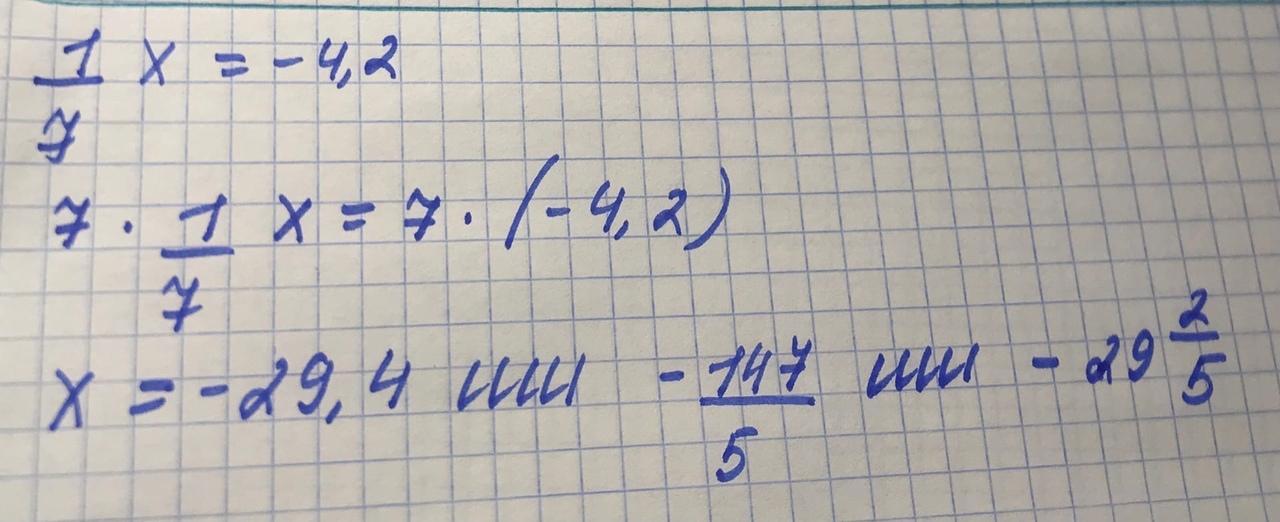 1/7 x = -4,2
7 · 1/7 x = 7 · (-4,2)
x = -29,4 или -147/5 или -29 2/5